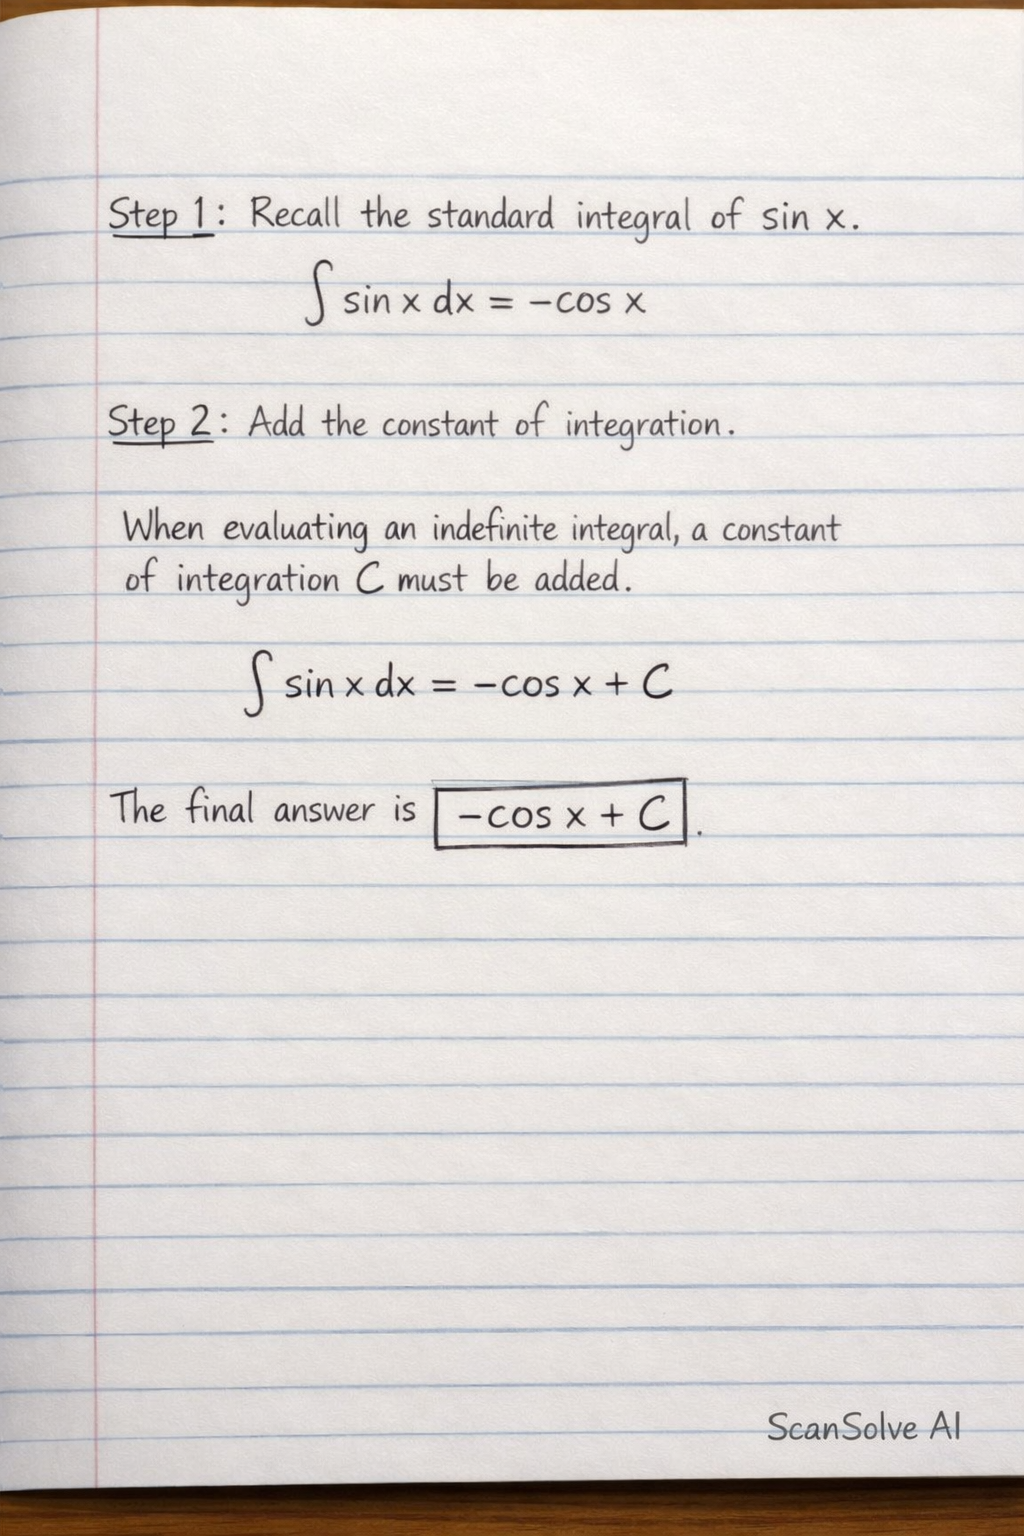 Step 1: Recall the standard integral of sin x.
∫ sin x dx = -cos x
Step 2: Add the constant of integration.
When evaluating an indefinite integral, a constant
of integration C must be added.
∫ sin x dx = -cos x + C
The final answer is -cos x + C.
ScanSolve AI